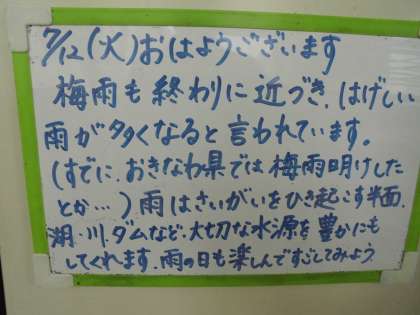 7/12(火)おはようございます
梅雨も終わりに近づき、はげしい
雨が多くなると言われています。
(すでに、おきなわ県では梅雨明けした
とか…)、雨はさいがいをひき起こす半面、
湖・川、ダムなど、大切な水源を豊かにも
してくれます。雨の日も楽しんですごしてみよう